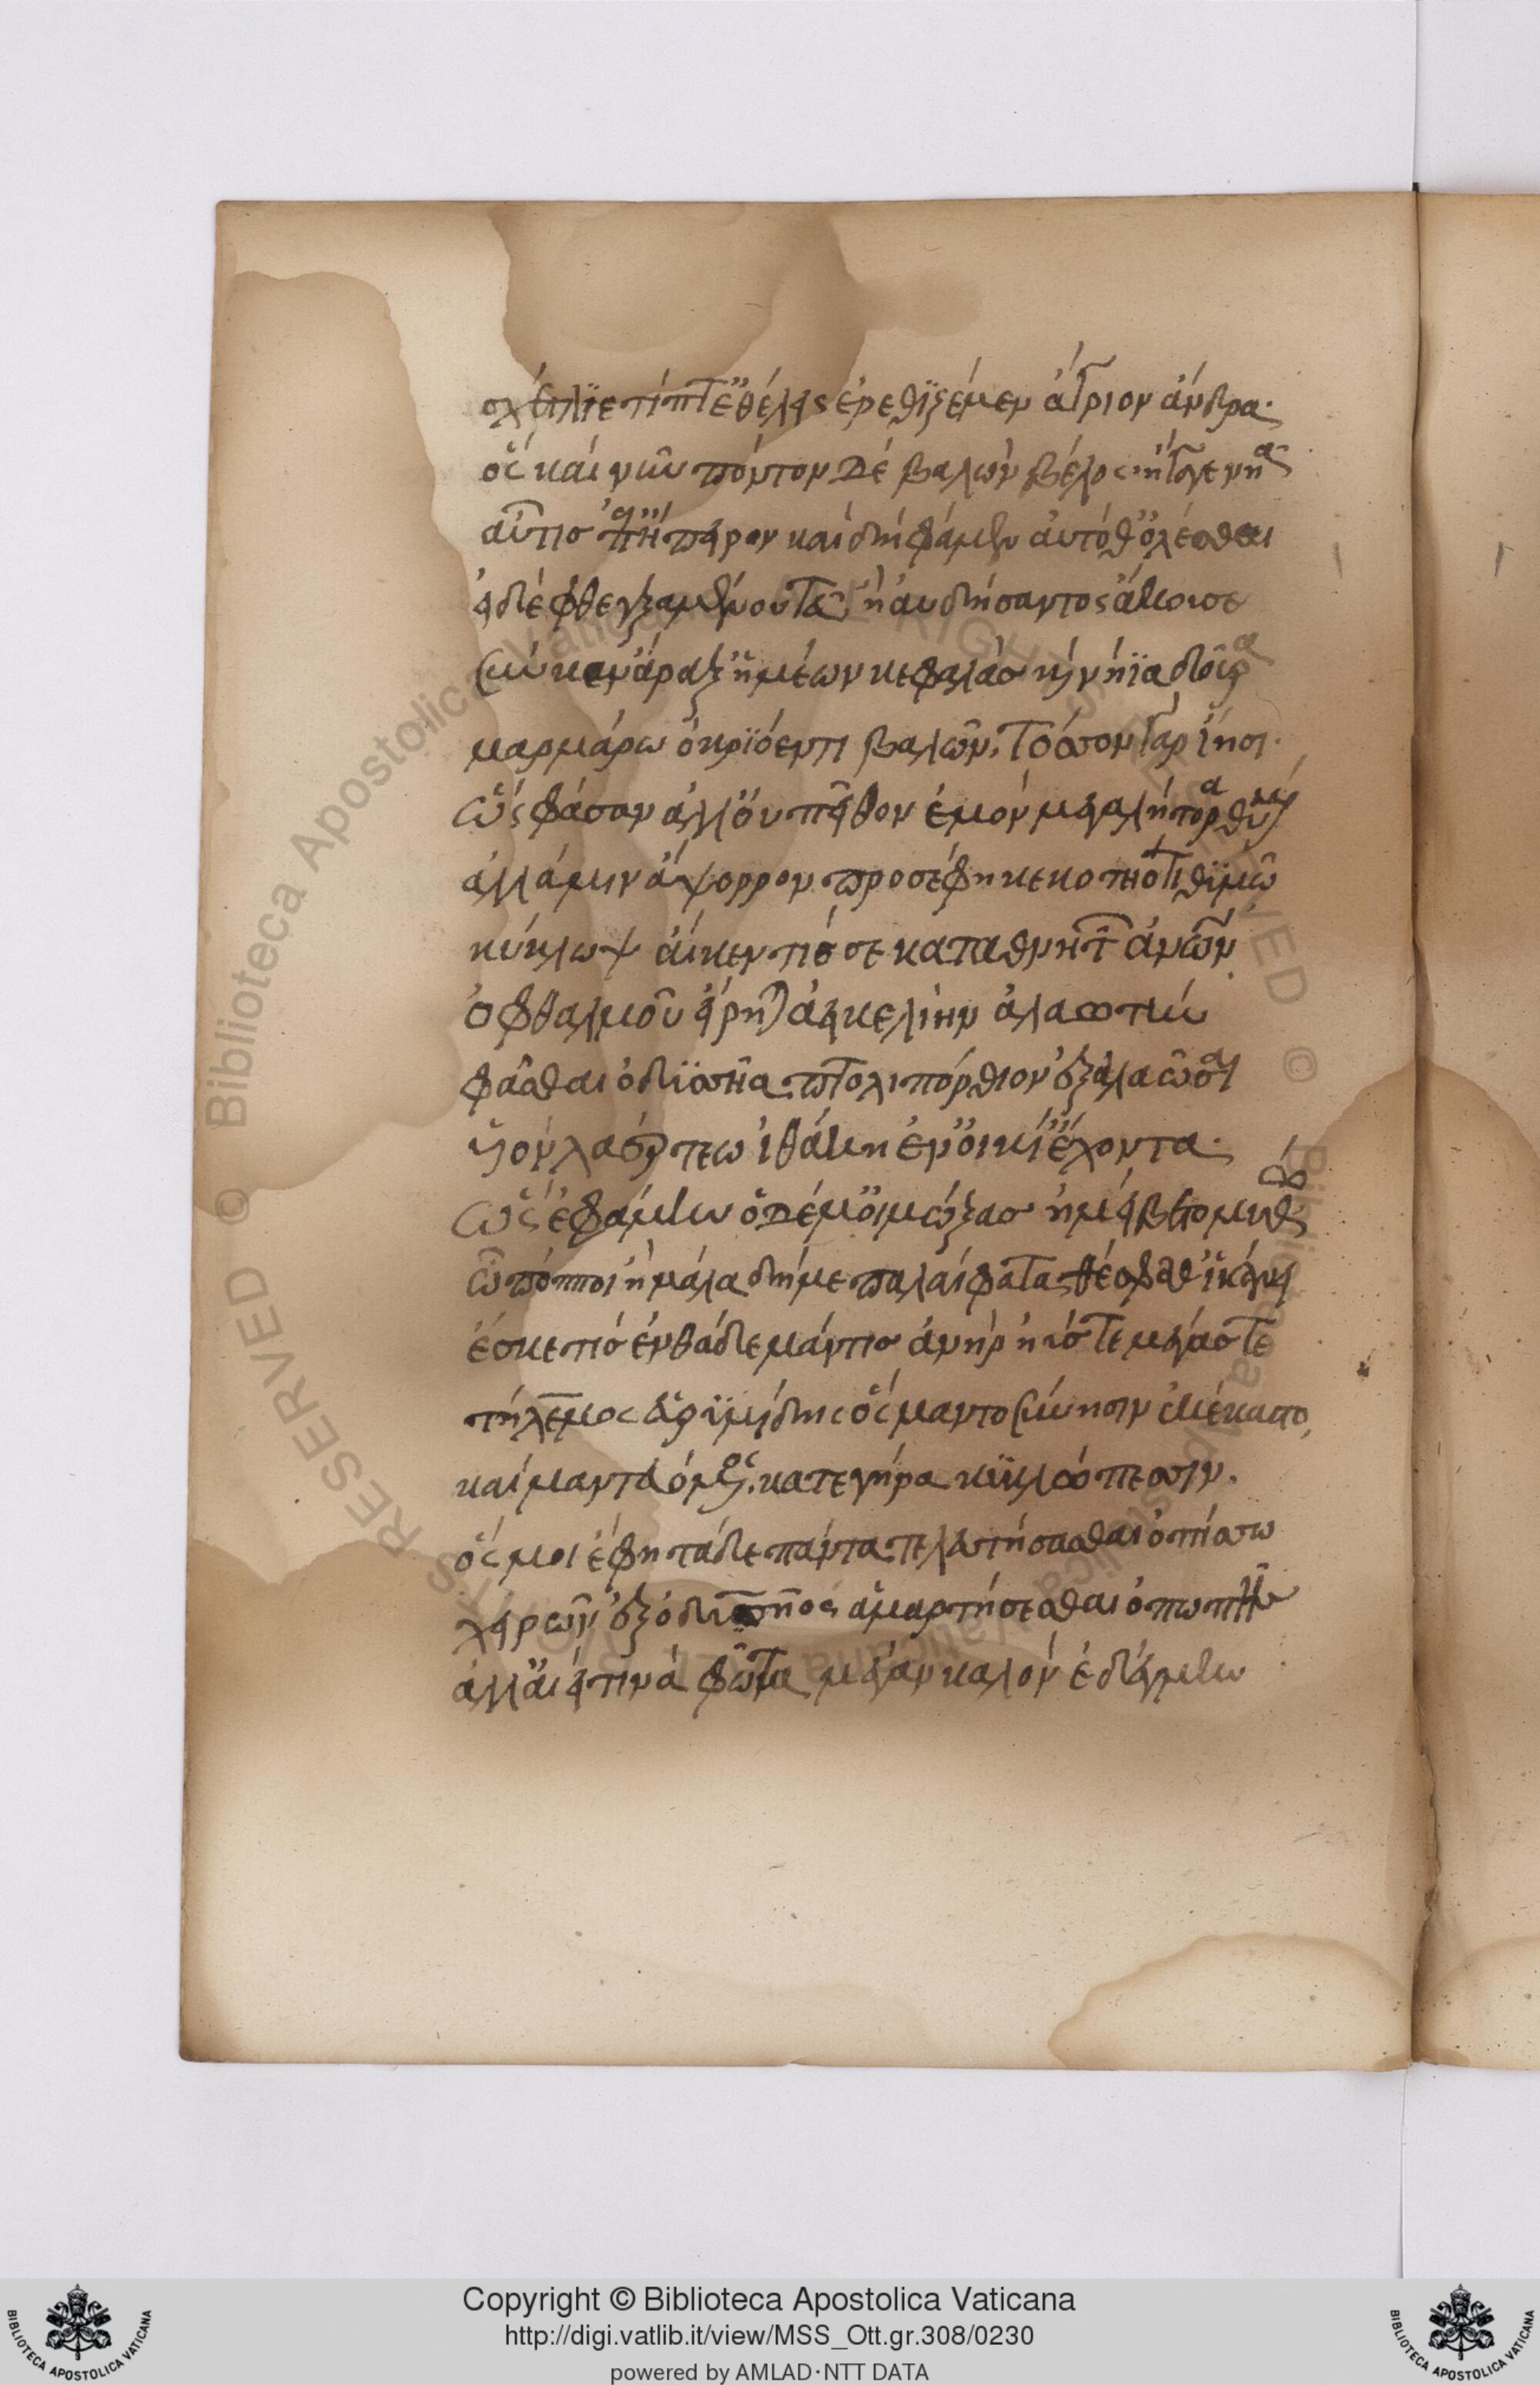 σχέτλιε τίπτ' ἐθέλεις ἐρεθιζέμεν ἄγριον ἄνδρα·
ὃς καὶ νῦν πόντον δὲ βαλὼν βέλος ἤγαγε νῆα
αὖτις ἐπ' ἤπειρον καὶ δὴ φάμεν αὐτόθ' ὀλέσθαι
εἰ δὲ φθεγξαμένου τευ ἢ αὐδήσαντος ἄκουσε
σύν κεν ἄραξ' ἡμέων κεφαλὰς καὶ νήϊα δοῦρα
μαρμάρω ὀκριόεντι βαλών, τόσσον γὰρ ἵησι·
ὣς φάσαν ἀλλ' οὐ πεῖθον ἐμὸν μεγαλήτορα θυμόν
ἀλλά μιν ἄψορρον προσέφην κεκοτηότι θυμῶ
κύκλωψ αἴκεν τίς σε καταθνητῶν ἀνθρώπων
ὀφθαλμοῦ εἴρηται ἀεικελίην ἀλαωτύν
φάσθαι ὀδυσσῆα πτολιπόρθιον ἐξαλαῶσαι
υἱὸν λαέρτεω ἰθάκη ἐν οἰκί' ἔχοντα·
ὣς ἐφάμην ὁ δέ μ' οἰμώξας ἠμείβετο μύθω
ὢ πόπποι ἦ μάλα δή με παλαίφατα θέσφαθ' ἱκάνει
ἔσκε τις ἐνθάδε μάντις ἀνὴρ ἠύς τε μέγας τε
τήλεμος εὐρυμίδης ὃς μαντοσύνησιν ἐκέκαστο,
καὶ μαντευόμενος κατεγήρα κυκλώπεσσιν.
ὅς μοι ἔφη τάδε πάντα τελευτήσασθαι ὀπίσσω
χειρῶν ἐξ ὀδυσσῆος ἁμαρτήσεσθαι ὀπωπῆς
ἀλλ' αἰεί τινα φῶτα μέγαν καλὸν ἐδέγμην
Copyright © Biblioteca Apostolica Vaticana
http://digi.vatlib.it/view/MSS_Ott.gr.308/0230
powered by AMLAD·NTT DATA